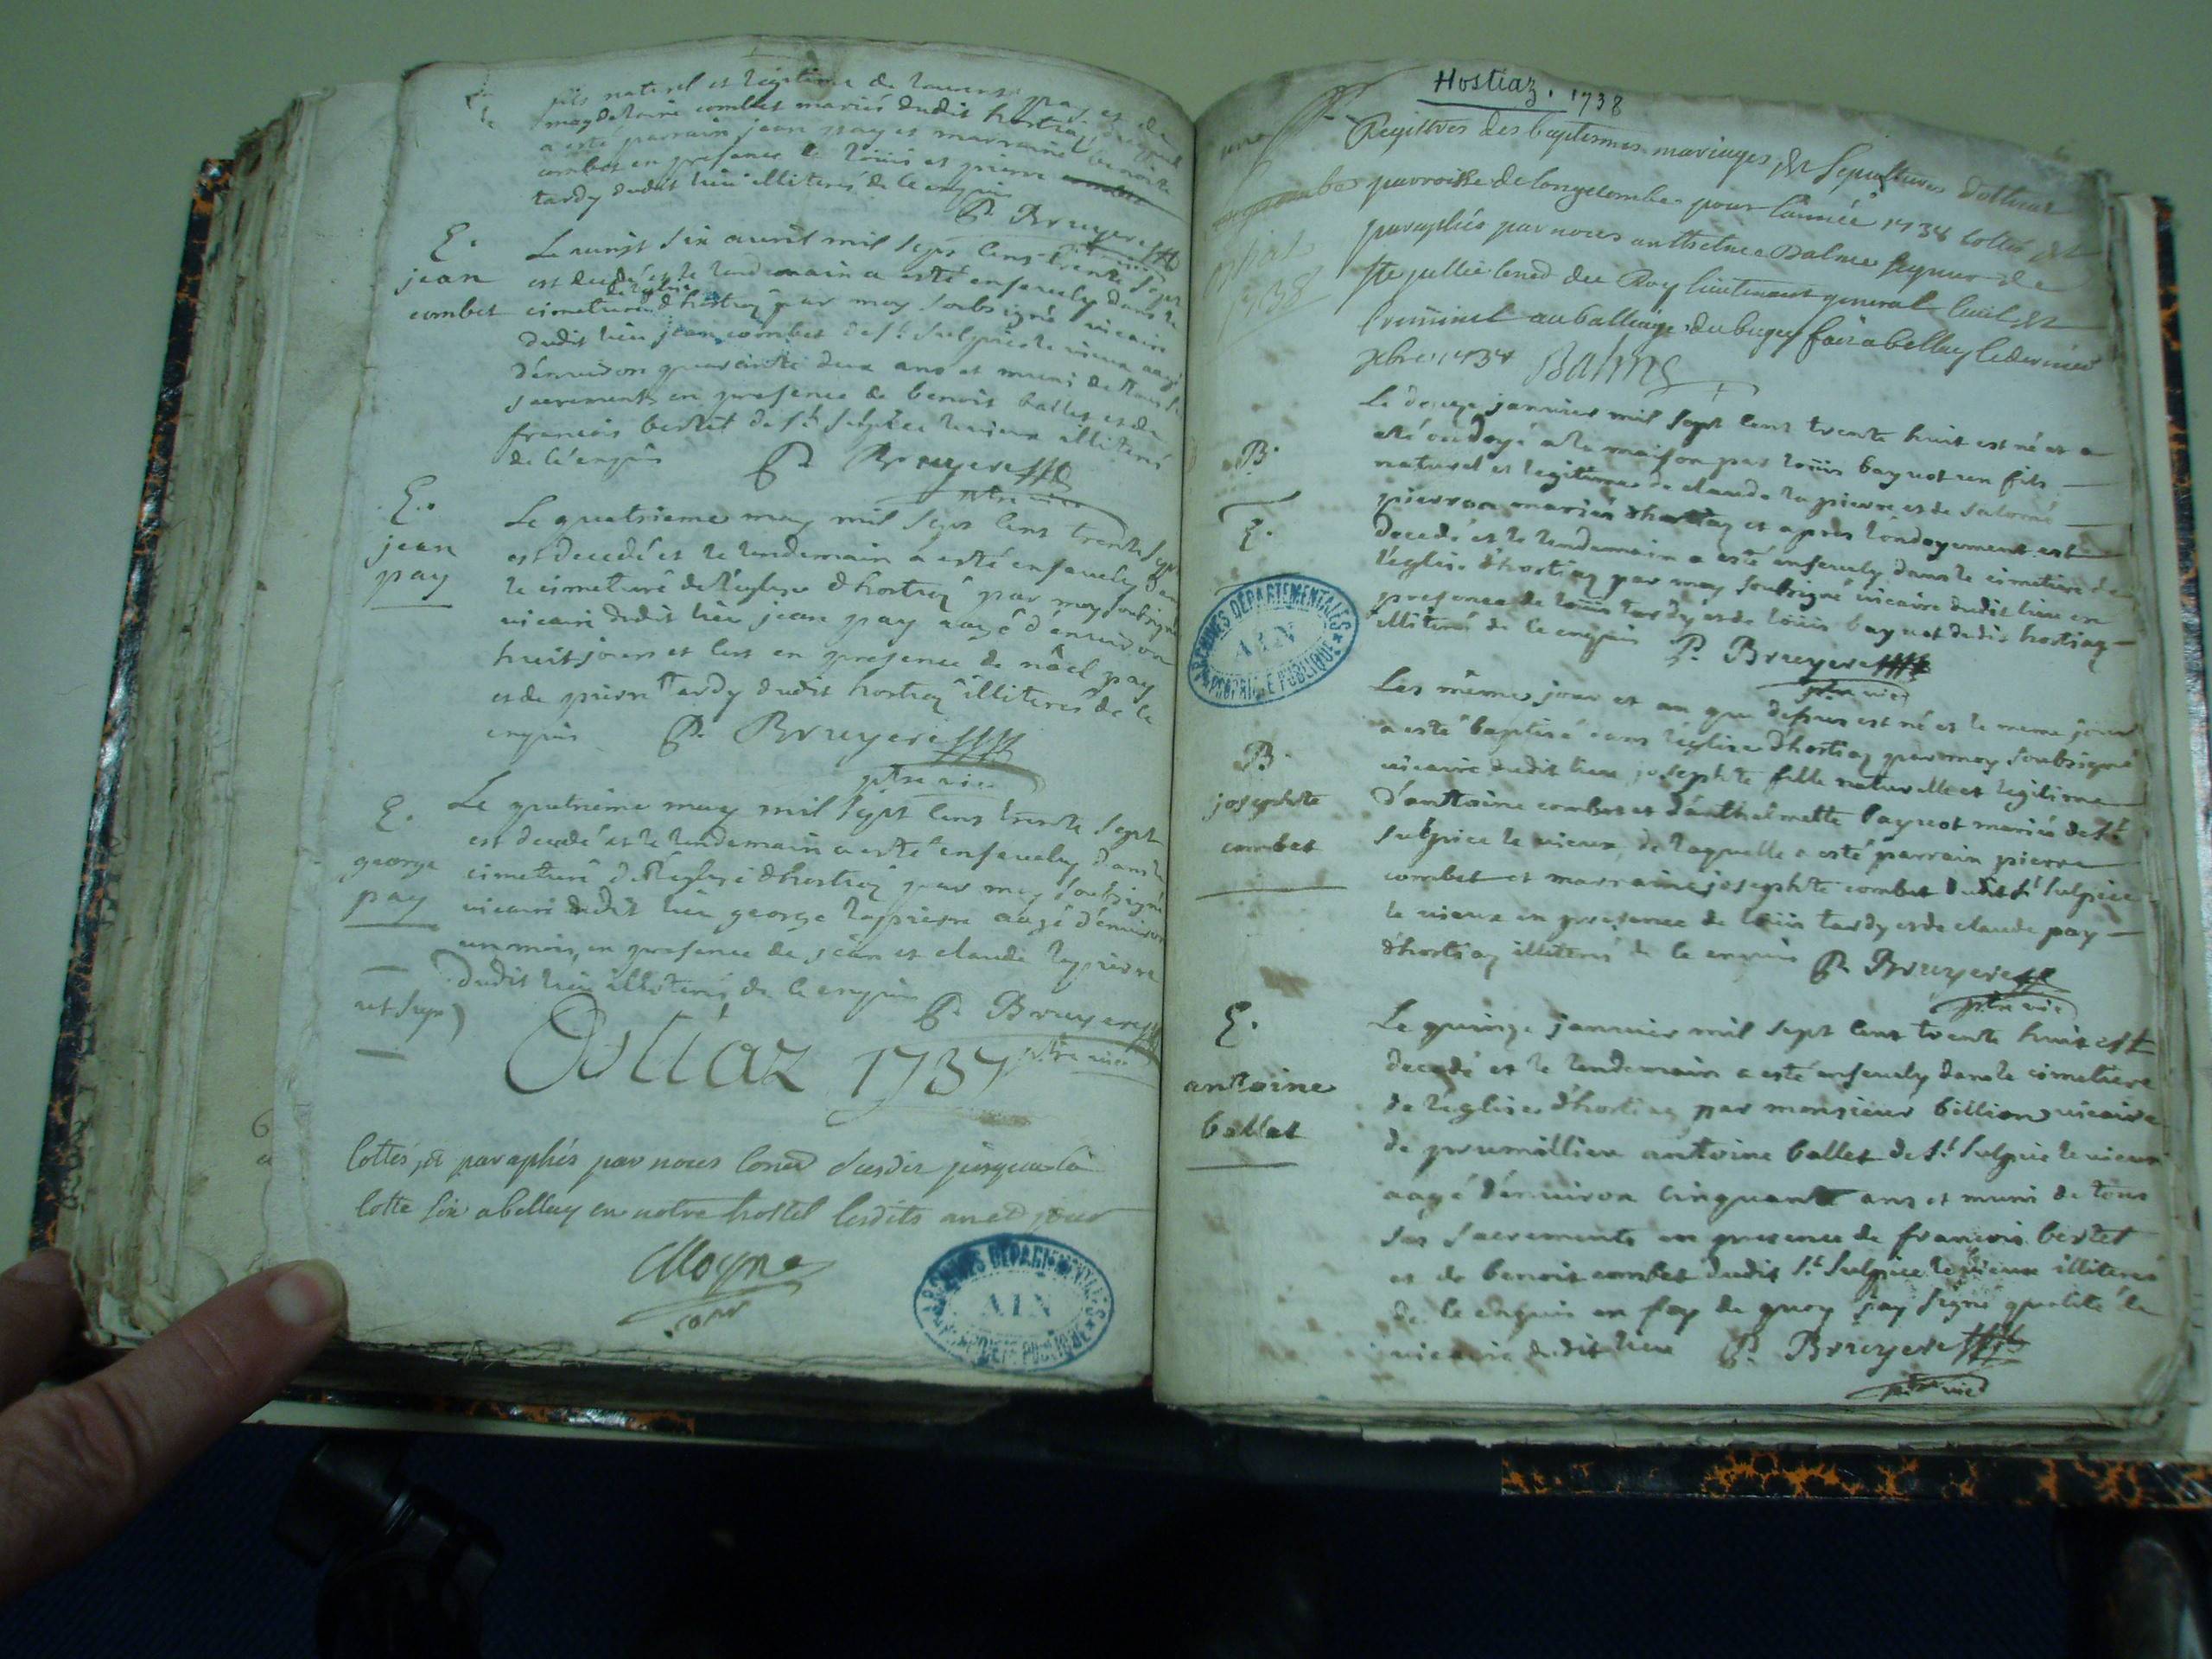 fils naturel et légitime de laurens pay et de
magdelaine combet mariés dudit hostiaz duquel
a esté parrain jean pay et marraine benoite
combet en presence de loüis et pierre combet
tardy dudit lieu illiterés de ce enquis
P. Bruyere
ptre vic
E.
jean
combet
Le vingt six avril mil sept cens trente sept
est decedé et le lendemain a esté ensevely dans le
cimetiere de l'eglise d'hostiaz par moy soubsigné vicaire
dudit lieu jean combet de St Sulpice le vieux aagé
d'environ quarante deux ans et muni de tous ses
sacrements en presence de benoit ballet et de
francois bertet de St Sulpice le vieux illiterés
de ce enquis P. Bruyere
ptre vic
E.
jean
pay
Le quatrieme may mil sept cens trente sept
est decedé et le lendemain a esté ensevely dans
le cimetiere de l'eglise d'hostiaz par moy soubsigné
vicaire dudit lieu jean pay aagé d'environ
huit jours et cest en presence de nöel pay
et de pierre Tardy dudit hostiaz illiterés de ce
enquis P. Bruyere
ptre vic
E.
george
pay
Le quatrieme may mil sept cens trente sept
est decedé et le lendemain a esté ensevely dans le
cimetiere de l'eglise d'hostiaz par moy soubsigné
vicaire dudit lieu george lapierre aagé d'environ
un mois, en presence de jean et claude lapierre
dudit lieu illiterés de ce enquis P. Bruyere
ptre vic
Ostiaz 1737
Cottés, et paraphés par nous Coned susdit jusqua la
Cotte six a belley en notre hostel lesdits an et jour
Moyne
ARCHIVES DÉPARTEMENTALES
AIN
PROPRIÉTÉ PUBLIQUE
Hostiaz. 1738
Registres des baptesmes, mariages, et sepultures d'ostiaz
parroisse de longecombe pour l'année 1738 Cottés et
paraphés par nous anthelme Balme seigneur de
Ste jullie Coned du Roy lieutenant general Civil et
Criminel au balliage du bugey fait a belley le dernier
xbre 1737 Balme
1738
B.
E.
Le douze janvier mil sept cens trente huit est né et a
esté ondoyé a la maison par loüis bayuot un fils
naturel et legitime de claude la pierre et de salomé
pierron mariés d'hostiaz et après l'ondoyement est
decedé et le lendemain a esté ensevely dans le cimetiere de
l'eglise d'hostiaz par moy soubsigné vicaire dudit lieu en
presence de loüis tardy et de loüis bayuot dudit hostiaz
illiterés de ce enquis P. Bruyere
ptre vic
ARCHIVES DÉPARTEMENTALES
AIN
PROPRIÉTÉ PUBLIQUE
B.
josephte
combet
Les mêmes jour et an que dessus est né et le meme jour
a esté baptisé dans l'église d'hostiaz par moy soubsigné
vicaire dudit lieu josephte fille naturelle et legitime
d'antoine combet et d'anthelmette bayuot mariés de St
Sulpice le vieux, de laquelle a esté parrain pierre
combet et marraine josephte combet dudit St Sulpice
le vieux en presence de loüis tardy et de claude pay
d'hostiaz illiterés de ce enquis P. Bruyere
ptre vic
E.
antoine
ballet
Le quinze janvier mil sept cent trente huit est
decedé et le lendemain a esté ensevely dans le cimetiere
de l'eglise d'hostiaz par monsieur billion vicaire
de prumillieu antoine ballet de St Sulpice le vieux
aagé d'environ cinquante ans et muni de tous
ses sacrements en presence de francois bertet
et de benoit combet dudit St Sulpice le vieux illiterés
de ce enquis en foy de quoy j'ay signé qualité de
vicaire dudit lieu P. Bruyere
ptre vic